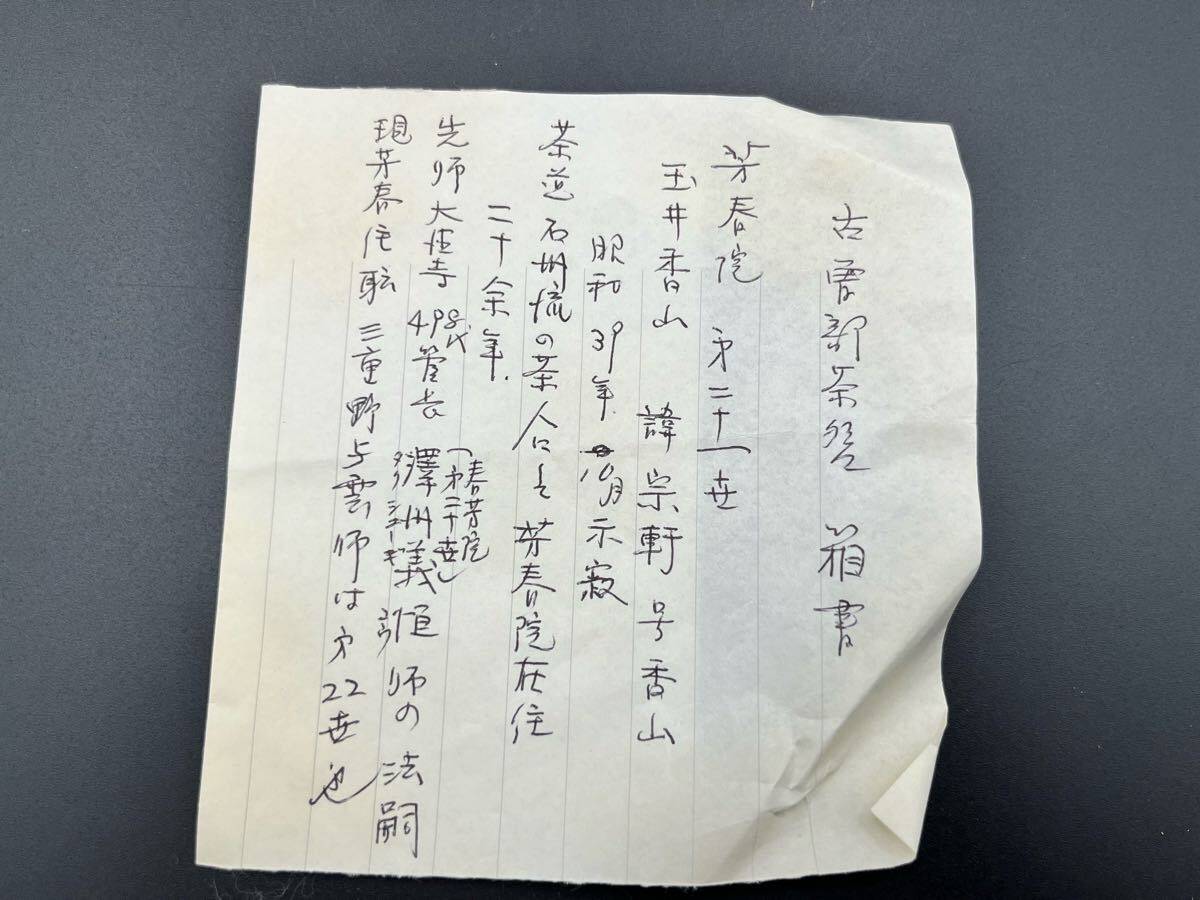 古曽部茶盌 箱書
芳春院 第二十一世
玉井香山 諱宗軒 号香山
昭和39年10月示寂
茶道石州流の茶人にして芳春院在住
二十余年.
先師大徳寺498代管長 澤州義恒師の法嗣
(春芳院
第二十世)
現芳春住職 三重野与雲師は第22世也